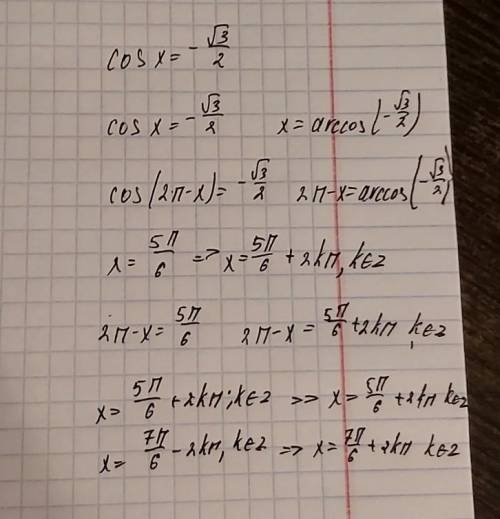 cos x = -√3/2
cos x = -√3/2 x = arccos(-√3/2)
cos(2π-x) = -√3/2 2π-x = arccos(-√3/2)
x = 5π/6 => x = 5π/6 + 2kπ, k∈z
2π-x = 5π/6 2π-x = 5π/6 + 2kπ, k∈z
x = 5π/6 + 2kπ; k∈z => x = 5π/6 + 2kπ k∈z
x = 7π/6 - 2kπ, k∈z => x = 7π/6 + 2kπ k∈z